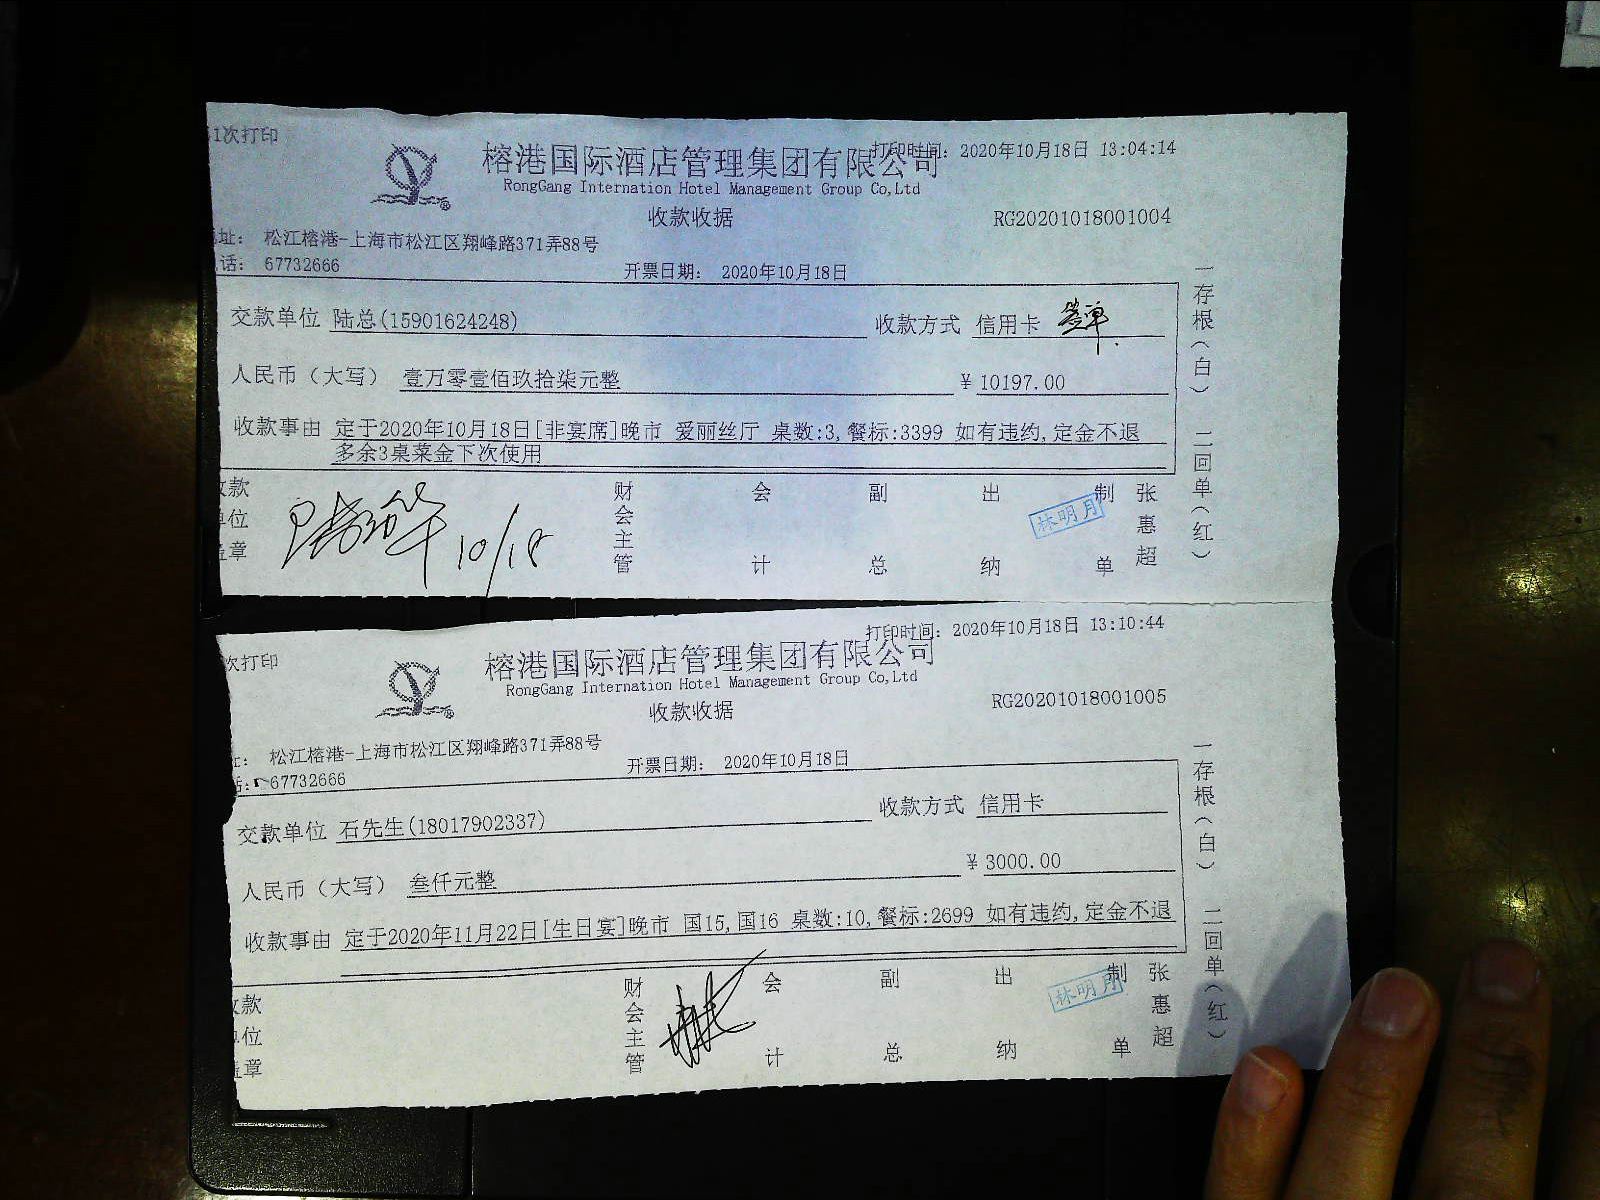 1次打印
打印时间: 2020年10月18日 13:04:14
榕港国际酒店管理集团有限公司
RongGang Internation Hotel Management Group Co,Ltd
收款收据
RG20201018001004
址: 松江榕港-上海市松江区翔峰路371弄88号
话: 67732666
开票日期: 2020年10月18日
交款单位 陆总(15901624248)
收款方式 信用卡 签单
人民币(大写) 壹万零壹佰玖拾柒元整
¥ 10197.00
收款事由 定于2020年10月18日[非宴席]晚市 爱丽丝厅 桌数:3,餐标:3399 如有违约,定金不退
多余3桌菜金下次使用
收款单位盖章 10/18
财会主管
会计
副总
出纳
林明月
制单
张惠超
一存根(白) 二回单(红)
次打印
打印时间: 2020年10月18日 13:10:44
榕港国际酒店管理集团有限公司
RongGang Internation Hotel Management Group Co,Ltd
收款收据
RG20201018001005
址: 松江榕港-上海市松江区翔峰路371弄88号
话: 67732666
开票日期: 2020年10月18日
交款单位 石先生(18017902337)
收款方式 信用卡
人民币(大写) 叁仟元整
¥ 3000.00
收款事由 定于2020年11月22日[生日宴]晚市 国15,国16 桌数:10,餐标:2699 如有违约,定金不退
收款单位盖章
财会主管
会计
副总
出纳
林明月
制单
张惠超
一存根(白) 二回单(红)